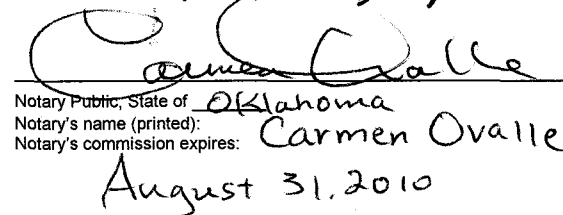 Carmen Ovalle
Notary Public, State of Oklahoma
Notary's name (printed): Carmen Ovalle
Notary's commission expires:
August 31, 2010